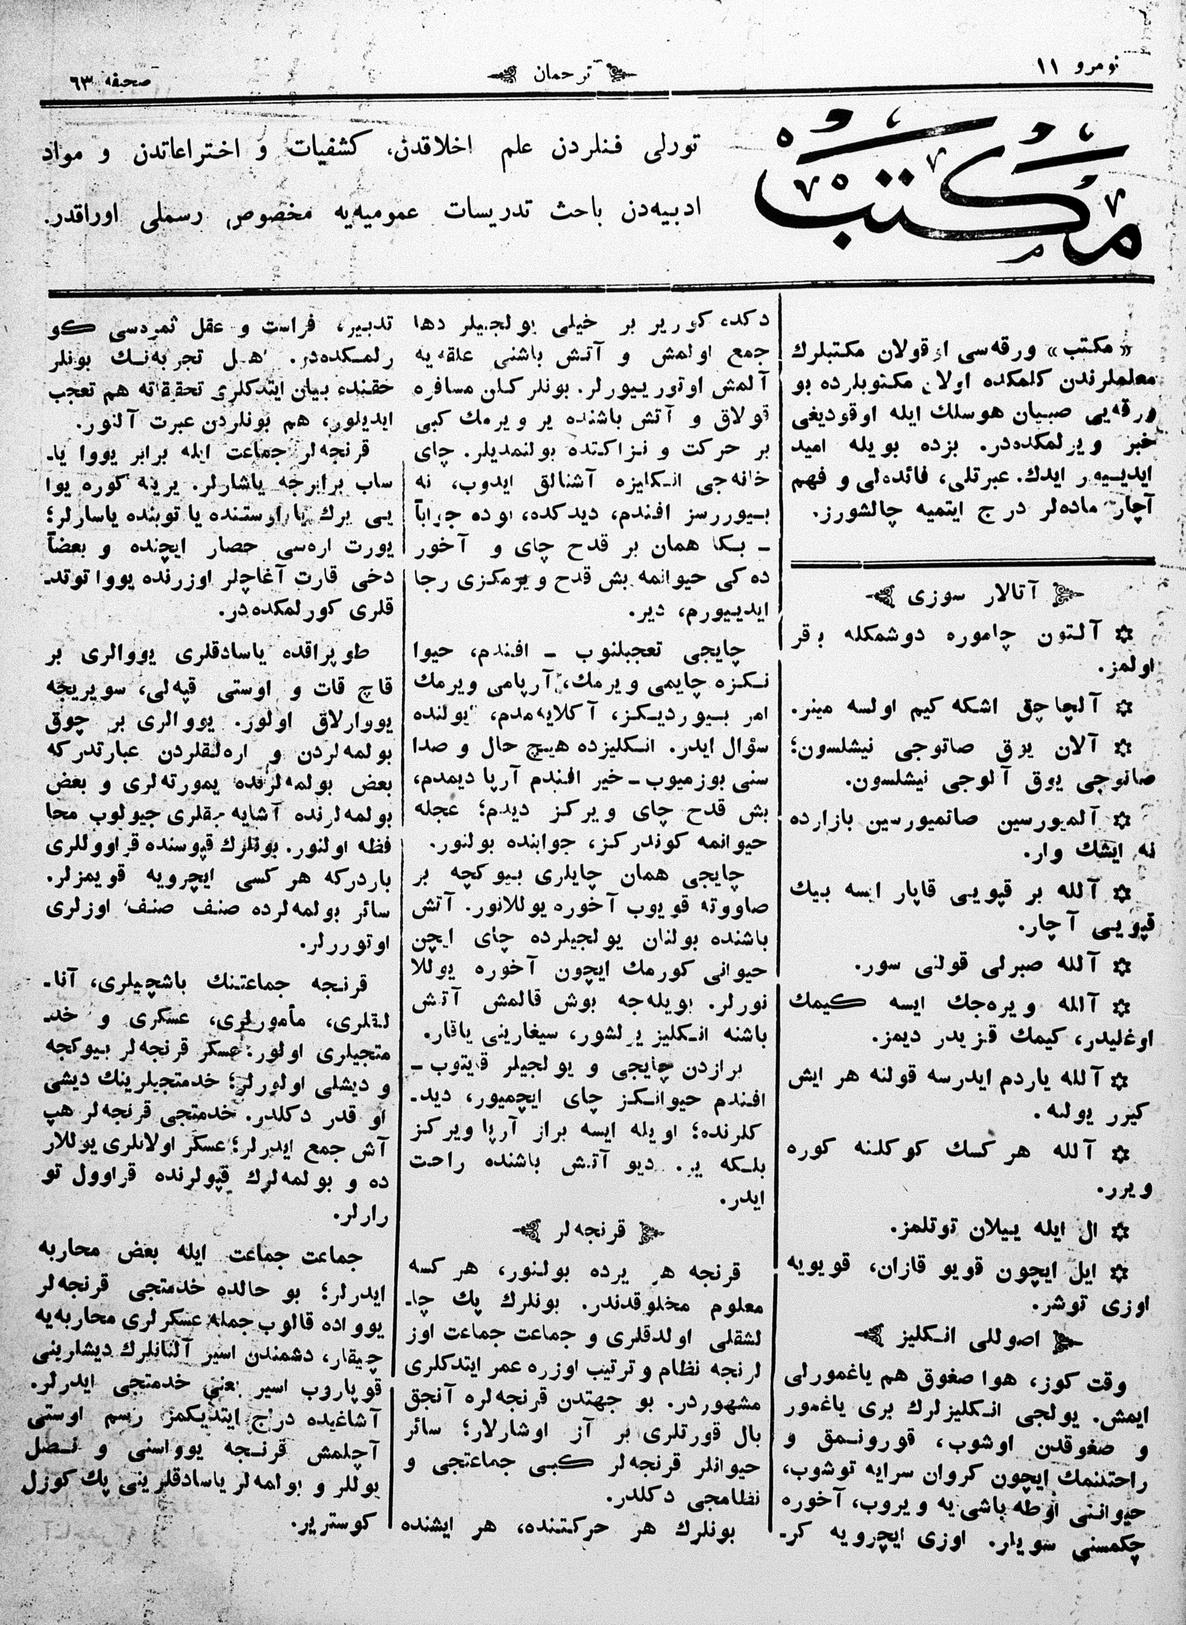 نومرو ١١
ترجمان
صحيفه ٦٣
مكتب
تورلی فنلردن علم اخلاقدن، كشفيات و اختراعاتدن و مواد
ادبيه‌دن باحث تدريسات عموميه‌يه مخصوص رسملی اوراقدر.
«مكتب» ورقه‌سی ارقولان مكتبلرك
معلملرندن كلمكده اولان مكتوبلرده بو
ورقه‌يی صبيان هوسلك ايله اوقوديغی
خبر ويرلمكده‌در. بزده بويله اميد
ايدييور ايدك. عبرتلی، فائده‌لی و فهم
آچار ماده‌لر درج ايتميه چالشورز.
آتالار سوزی
۞ آلتون چاموره دوشمكله بقر
اولمز.
۞ آلچاچق اشكه كيم اولسه مينر.
۞ آلان يوق صاتوجی نيشلسون؛
صاتوجی يوق آلوجی نيشلسون.
۞ آلميورسين صاتميورسين بازارده
نه ايشك وار.
۞ آلله بر قپويی قاپار ايسه بيك
قپويی آچار.
۞ آلله صبرلی قولنی سور.
۞ آلله ويره‌جك ايسه كيمك
اوغليدر، كيمك قزيدر ديمز.
۞ آلله ياردم ايدرسه قولنه هر ايش
كيرر يولنه.
۞ آلله هر كسك كوكلنه كوره
ويرر.
۞ ال ايله ييلان توتلمز.
۞ ايل ايچون قويو قازان، قويويه
اوزی توشر.
اصوللی انكليز
وقت كوز، هوا صغوق هم ياغمورلی
ايمش. يولجی انكليزلرك بری ياغمور
و صغوقدن اوشوب، قورونمق و
راحتلنمك ايچون كروان سرايه توشوب،
حيواننی اوطه باشی‌يه ويروب، آخوره
چكمسنی سويلر. اوزی ايچرويه كر-
دكده، كورير بر خيلی يولجيلر دها
جمع اولمش و آتش باشنی علقه‌يه
آلمش اوتورييورلر. بونلر كلن مسافره
قولاق و آتش باشنده ير ويرمك كبی
بر حركت و نزاكتده بولنمديلر. چای
خانه‌جی انكليزه آشنالق ايدوب، نه
بيوررسز افندم، ديدكده، اوده جوابآ
ـ بكا همان بر قدح چای و آخور
ده‌كی حيوانمه بش قدح ويرمكزی رجا
ايدييورم، دير.
چايجی تعجبلنوب ـ افندم، حيوا
نكزه چايمی ويرمك، آرپامی ويرمك
امر بيورديكز، آكلايه‌مدم، يولنده
سؤال ايدر. انكليزده هيچ حال و صدا
سنی بوزميوب ـ خير افندم آرپا ديمدم،
بش قدح چای ويركز ديدم؛ عجله
حيوانمه كوندركز، جوابنده بولنور.
چايجی همان چايلری بيوكچه بر
صاووته قويوب آخوره يوللانور. آتش
باشنده بولنان يولجيلرده چای ايچن
حيوانی كورمك ايچون آخوره يوللا
نورلر. بويله‌جه بوش قالمش آتش
باشنه انكليز يرلشور، سيغارينی ياقار.
برازدن چايجی و يولجيلر قايتوب ـ
افندم حيوانكز چای ايچميور، ديد-
كلرنده؛ اويله ايسه براز آرپا ويركز
بلكه ير. ديو آتش باشنده راحت
ايدر.
قرنجه‌لر
قرنجه هر يرده بولنور، هر كسه
معلوم مخلوقدندر. بونلرك پك چا-
لشقلی اولدقلری و جماعت جماعت اوز
لرنجه نظام و ترتيب اوزره عمر ايتدكلری
مشهوردر. بو جهتدن قرنجه‌لره آنجق
بال قورتلری بر آز اوشارلار؛ سائر
حيوانلر قرنجه‌لر كبی جماعتجی و
نظامجی دكلدر.
بونلرك هر حركتنده، هر ايشنده
تدبير، فراست و عقل ثمره‌سی كو
رلمكده‌در. اهل تجربه‌نك بونلر
حقنده بيان ايتدكلری تحقيقاته هم تعجب
ايديلور، هم بونلردن عبرت آلنور.
قرنجه‌لر جماعت ايله برابر يووا يا-
ساب برابرجه ياشارلر. يرينه كوره يوا
يی يرك يا اوستنده يا توبنده ياسارلر؛
يورت اره‌سی حصار ايچنده و بعضآ
دخی قارت آغاچلر اوزرنده يووا توتد-
قلری كورلمكده‌در.
طوپراقده ياسادقلری يووالری بر
قاچ قات و اوستی قپه‌لی، سويريجه
يووارلاق اولور. يووالری بر چوق
بولمه‌لردن و اره‌لقلردن عبارتدركه
بعض بولمه‌لرنده يمورته‌لری و بعض
بولمه‌لرنده آشايه‌جقلری جيولوب محا
فظه اولنور. بونلرك قپوسنده قراووللری
باردركه هر كسی ايچرويه قويمزلر.
سائر بولمه‌لرده صنف صنف اوزلری
اوتوررلر.
قرنجه جماعتنك باشچيلری، آنا-
لقلری، مأمورلری، عسكری و خد-
متجيلری اولور: عسكر قرنجه‌لر بيوكچه
و ديشلی اولورلر؛ خدمتجيلرينك ديشی
او قدر دكلدر. خدمتجی قرنجه‌لر هپ
آش جمع ايدرلر؛ عسكر اولانلری يوللار
ده و بولمه‌لرك قپولرنده قراوول تو
رارلر.
جماعت جماعت ايله بعض محاربه
ايدرلر؛ بو حالده خدمتجی قرنجه‌لر
يوواده قالوب جمله عسكرلری محاربه‌يه
چيقار، دشمندن اسير آلنانلرك ديشارينی
قوپاروب اسير يعنی خدمتجی ايدرلر.
آشاغيده درج ايتديكمز رسم اوستی
آچلمش قرنجه يوواسنی و نصل
يوللر و بولمه‌لر ياسادقلرينی پك كوزل
كوسترير.